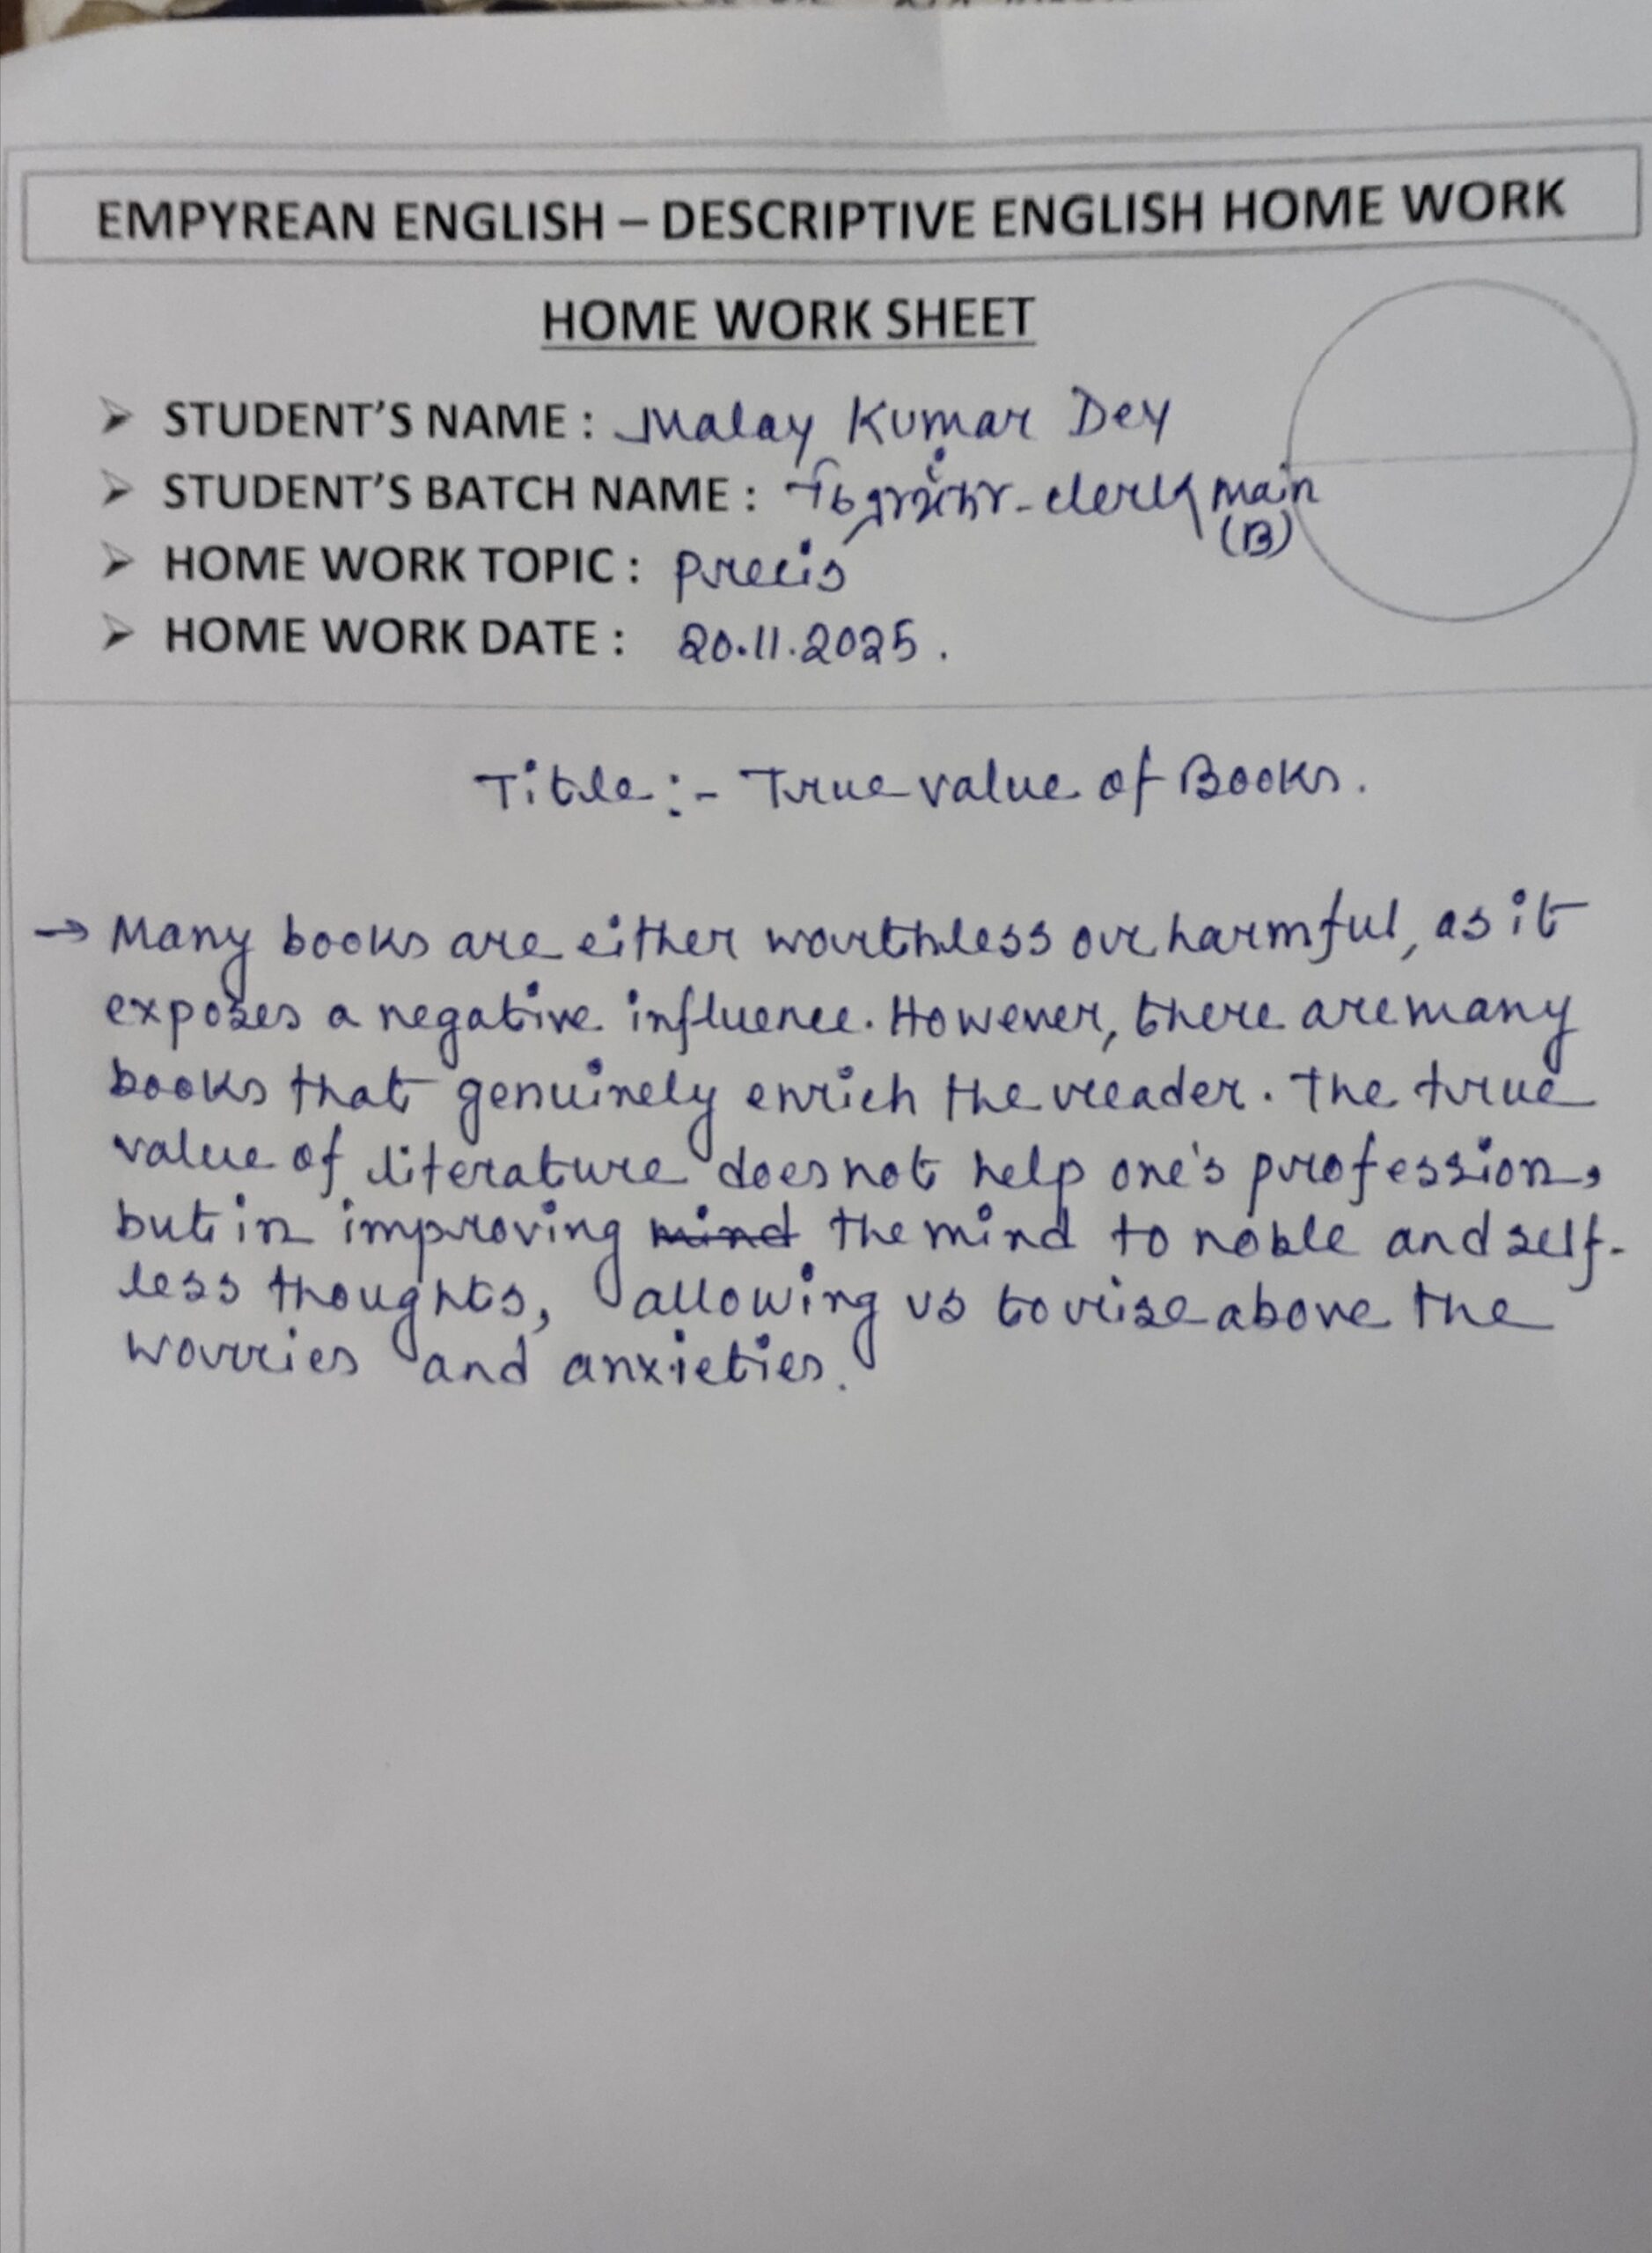 EMPYREAN ENGLISH – DESCRIPTIVE ENGLISH HOME WORK
HOME WORK SHEET
➤ STUDENT'S NAME : Malay Kumar Dey
➤ STUDENT'S BATCH NAME : clerk main
(B)
➤ HOME WORK TOPIC : Precis
➤ HOME WORK DATE : 20.11.2025.
Title :- True value of Books.
→ Many books are either worthless or harmful, as it
exposes a negative influence. However, there are many
books that genuinely enrich the reader. The true
value of literature does not help one's profession,
but in improving mind the mind to noble and self-
less thoughts, allowing us to rise above the
worries and anxieties.